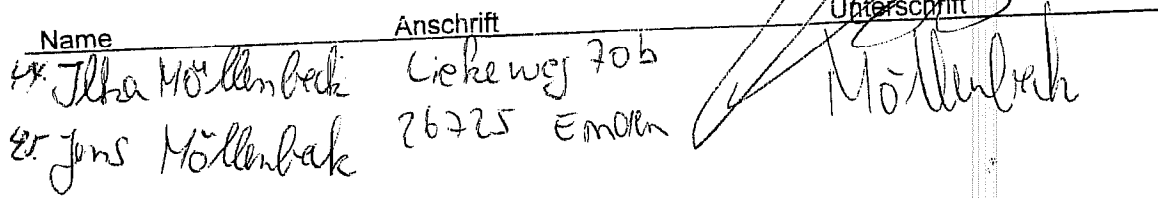 Name Anschrift Unterschrift
44. Ilka Möllenbeck Liekeweg 70b Möllenbeck
45. Jens Möllenbeck 26725 Emden